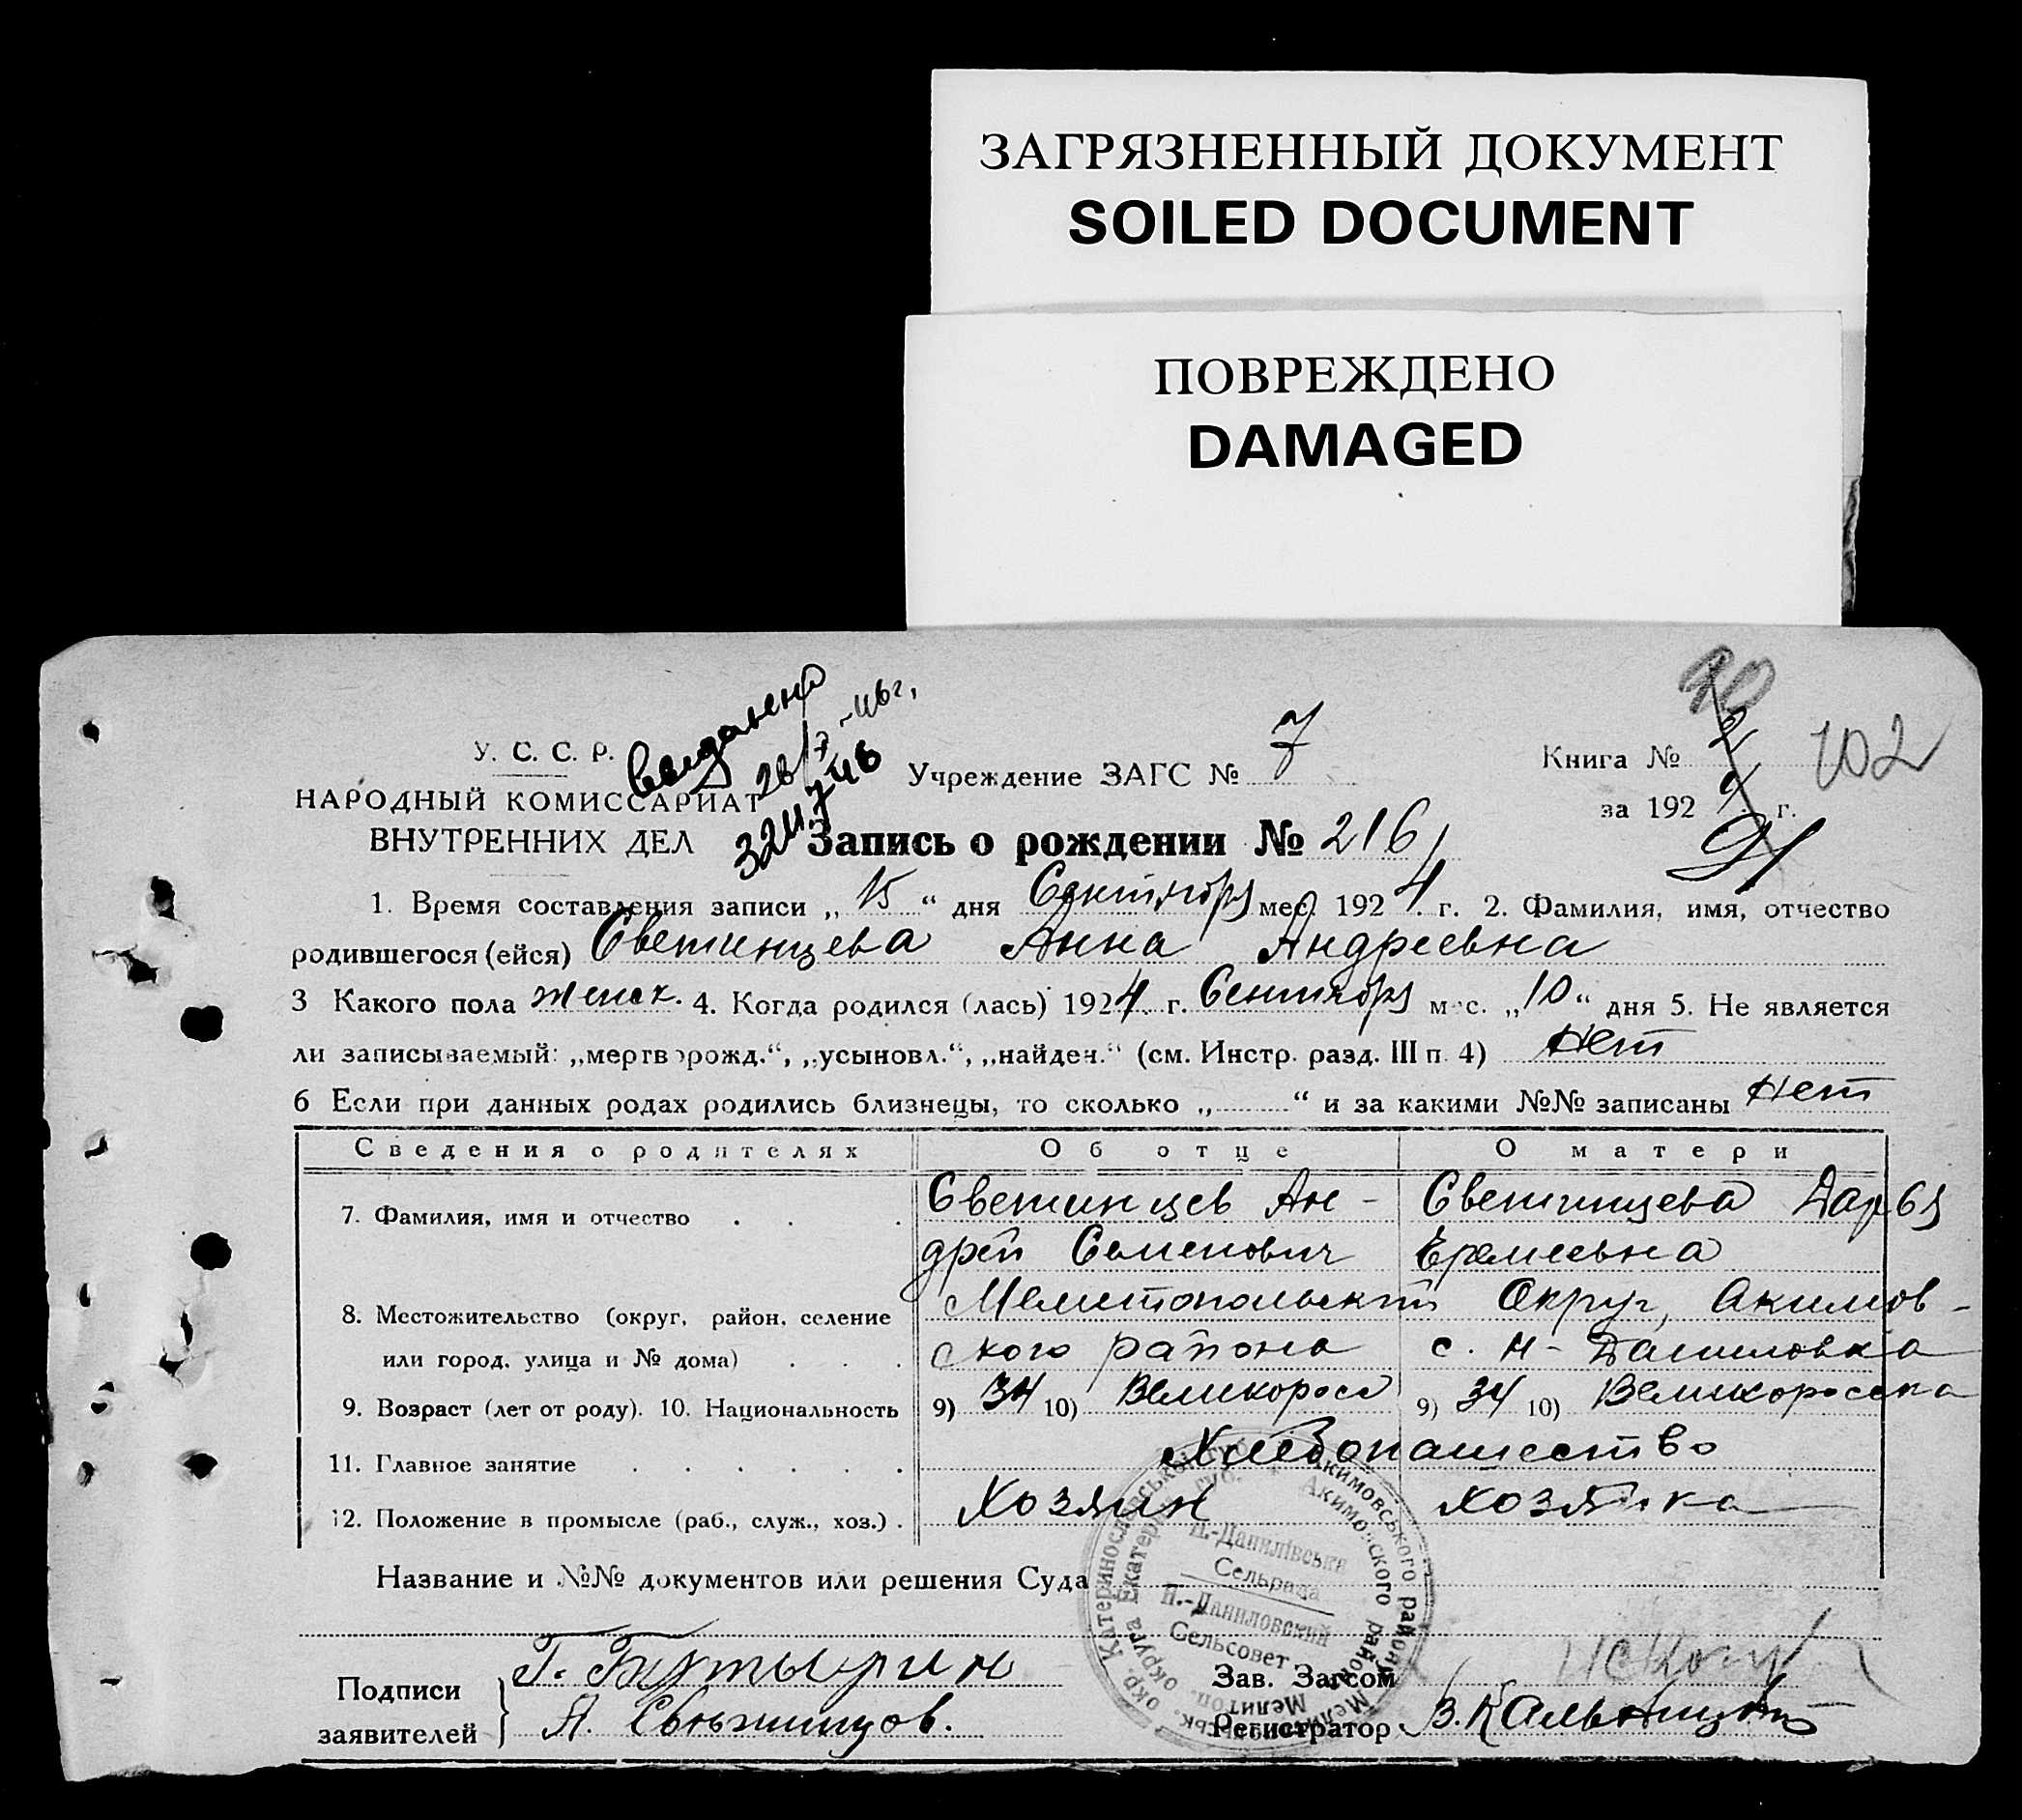 ЗАГРЯЗНЕННЫЙ ДОКУМЕНТ
SOILED DOCUMENT
ПОВРЕЖДЕНО
DAMAGED
У. С. С. Р.
НАРОДНЫЙ КОМИССАРИАТ
ВНУТРЕННИХ ДЕЛ
Учреждение ЗАГС № 7
Книга № 2
102
за 1924 г.
Запись о рождении № 216
1. Время составления записи „15“ дня Сентября мес. 1924 г. 2. Фамилия, имя, отчество
родившегося (ейся) Светинцева Анна Андреевна
3 Какого пола женск. 4. Когда родился (лась) 1924 г. Сентября мес. „10“ дня 5. Не является
ли записываемый: „мертворожд.“, „усыновл.“, „найден.“ (см. Инстр. разд. III п. 4) Нет
6 Если при данных родах родились близнецы, то сколько „........“ и за какими №№ записаны Нет
Сведения о родителях Об отце О матери
7. Фамилия, имя и отчество Светинцев Ан- Светинцева Дарья
дрей Семенович Еремеевна
8. Местожительство (округ, район, селение Мелитопольский Округ, Акимов-
или город, улица и № дома) ского района с. Н-Даниловка
9. Возраст (лет от роду). 10. Национальность 9) 34 10) Великоросс 9) 34 10) Великоросска
11. Главное занятие Хлебопашество
12. Положение в промысле (раб., служ., хоз.) Хозяин хозяйка
Н.-Данилівська
Сельрада
Н.-Даниловский
Сельсовет
Название и №№ документов или решения Суда
Подписи
заявителей
Г. Бутырин
А. Светинцов.
Зав. Загсом
Регистратор В. Кальницкий